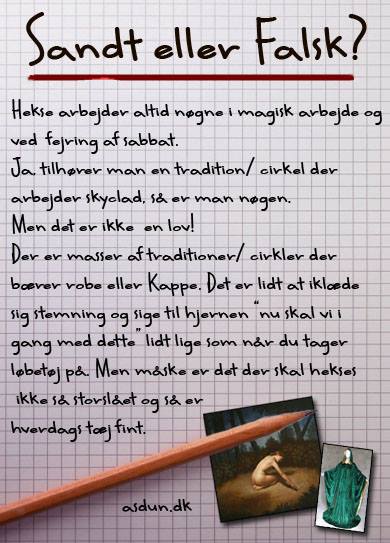 Sandt eller Falsk?
Hekse arbejder altid nøgne i magisk arbejde og
ved fejring af sabbat.
Ja, tilhører man en tradition/ cirkel der
arbejder skyclad, så er man nøgen.
Men det er ikke en lov!
Der er masser af traditioner/ cirkler der
bærer robe eller Kappe. Det er lidt at iklæde
sig stemning og sige til hjernen "nu skal vi i
gang med dette" lidt lige som når du tager
løbetøj på. Men måske er det der skal hekses
ikke så storslået og så er
hverdags tøj fint.
asdun.dk